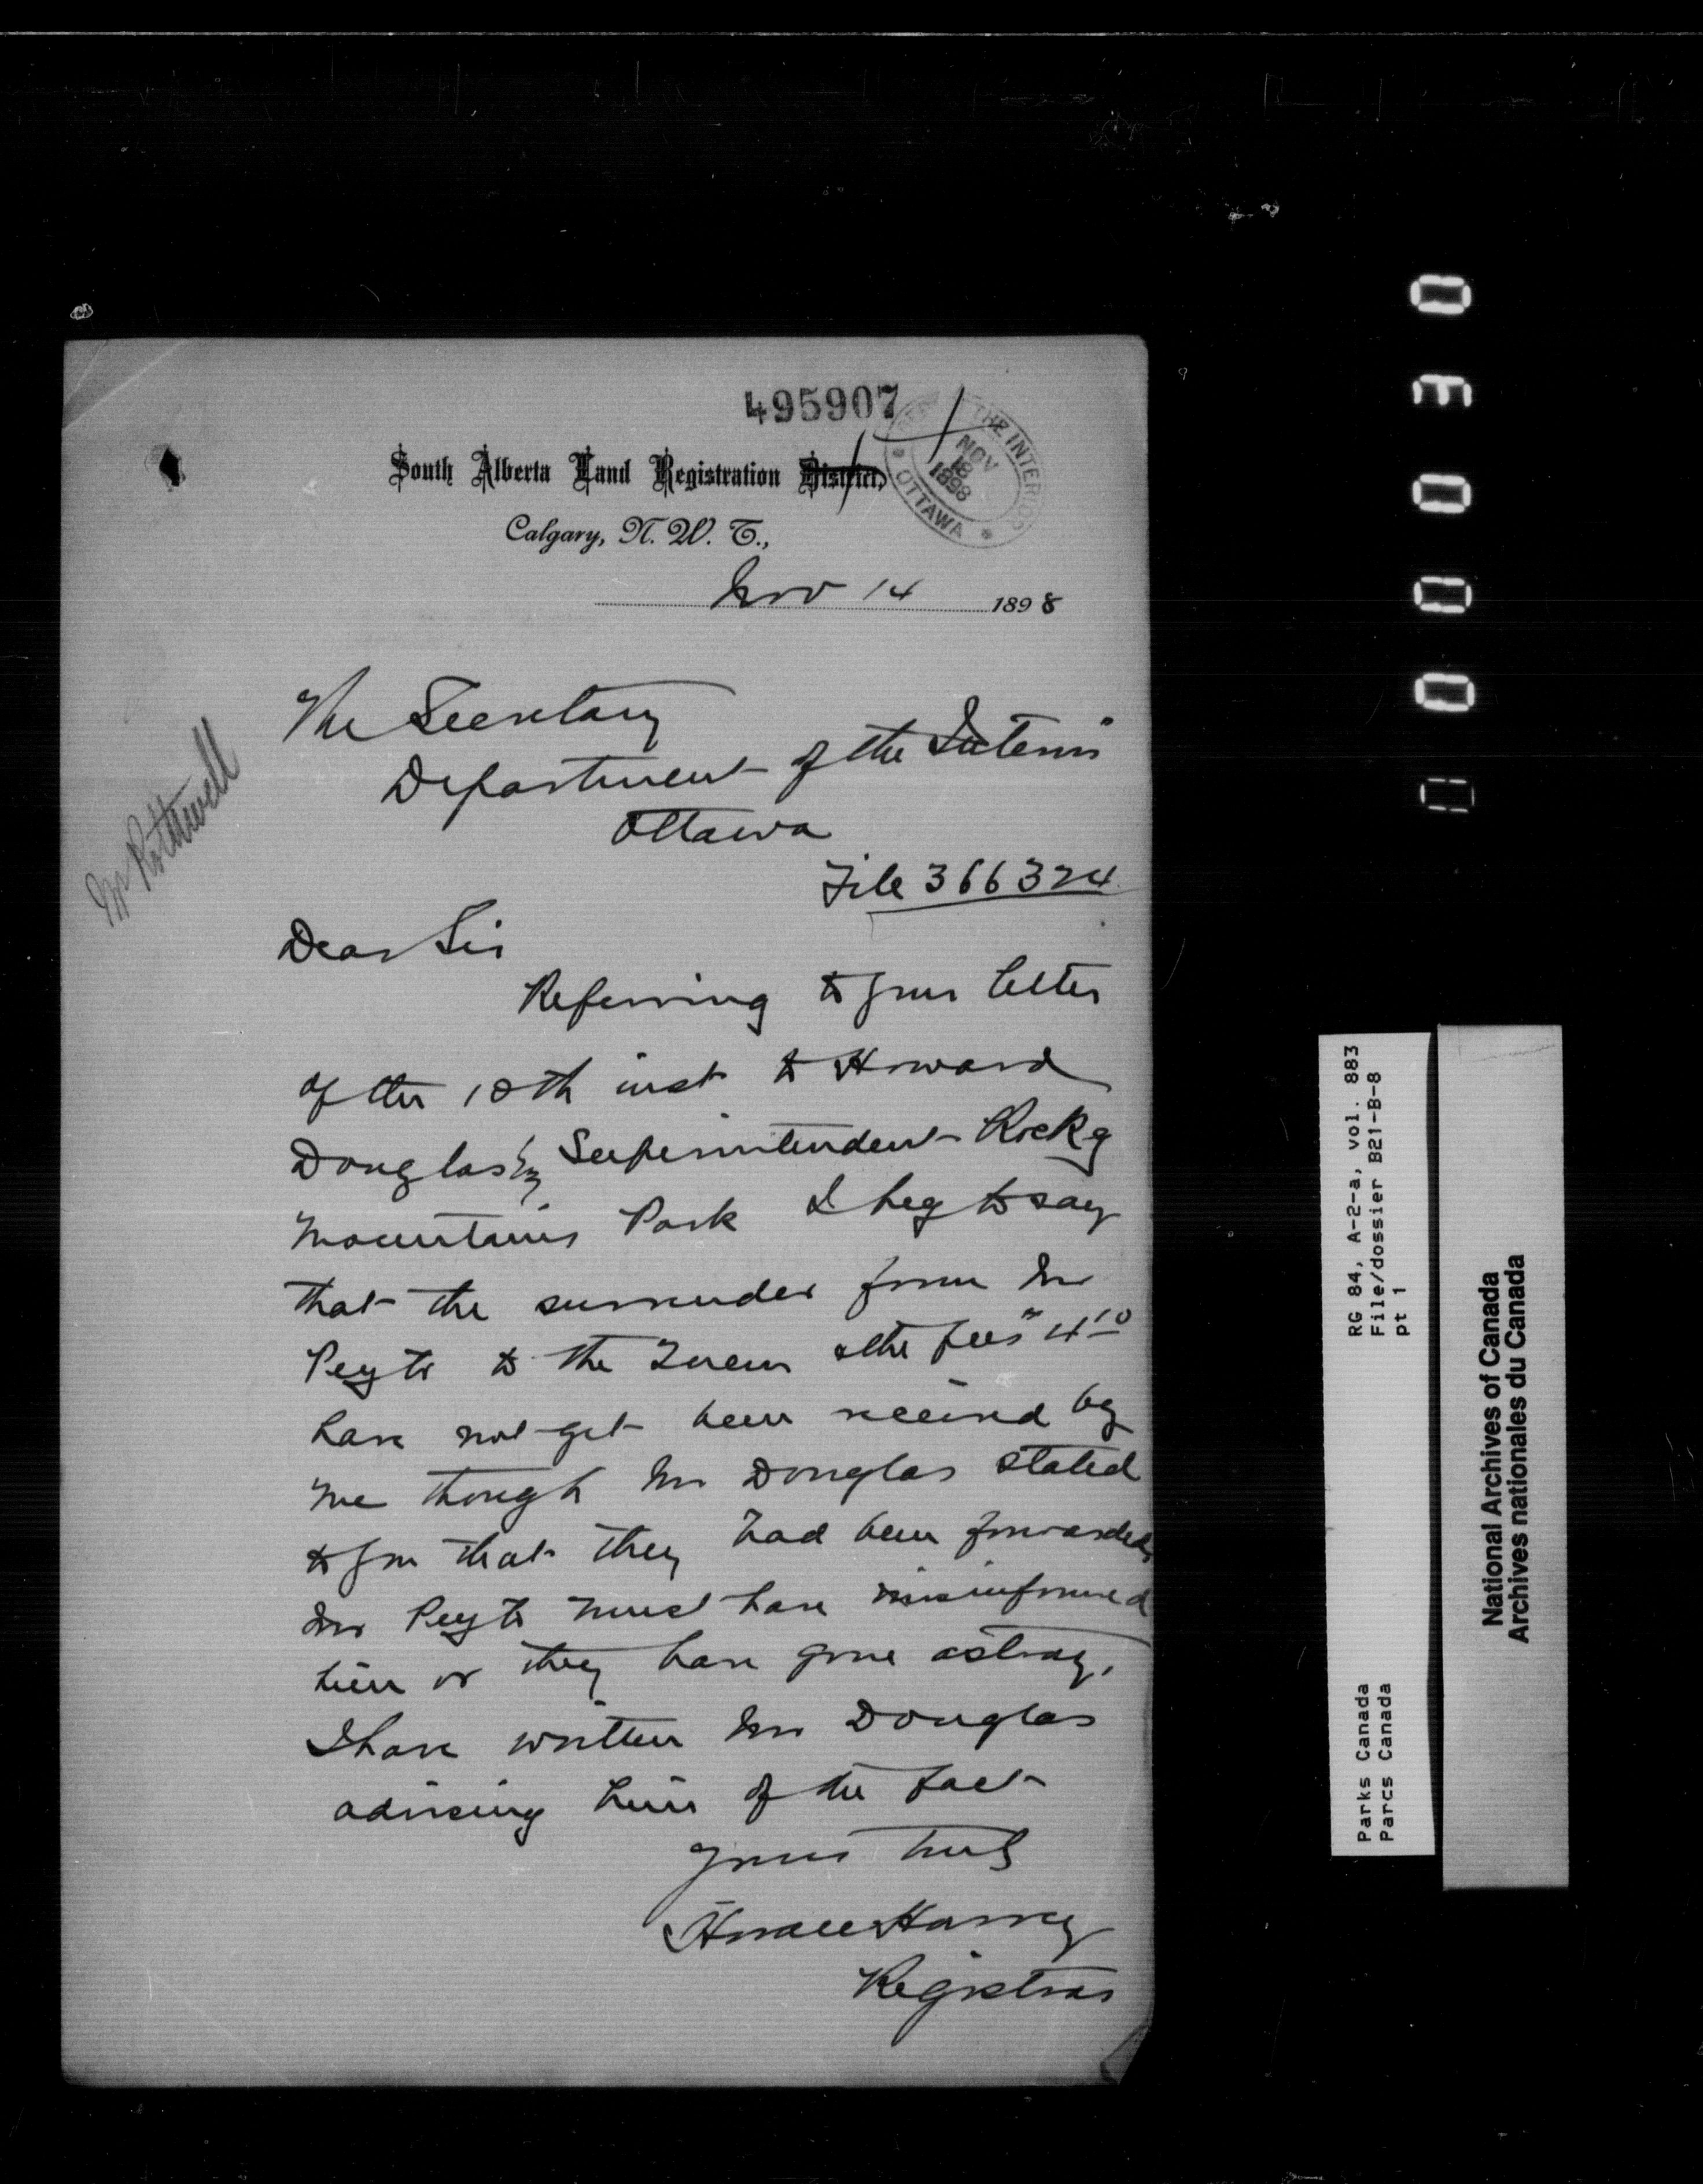 495907
South Alberta Land Registration District,
Calgary, N. W. T.,
THE INTERIOR
NOV
18
1898
OTTAWA
Nov 14 1898
Mr Rothwell
The Secretary
Department of the Interior
Ottawa
File 366324
Dear Sir
Referring to your letter
of the 10th inst to Howard
Douglas Esq Superintendent Rocky
Mountains Park I beg to say
that the surrender from Mr
Peyto to the Queen & the fees 4 10
have not yet been received by
me though Mr Douglas stated
to you that they had been forwarded
Mr Peyto must have misinformed
him or they have gone astray.
I have written Mr Douglas
advising him of the fact
Yours truly
Horace Harvey
Registrar
000030
RG 84, A-2-a, vol. 883
File/dossier B21-B-8
pt 1
Parks Canada
Parcs Canada
National Archives of Canada
Archives nationales du Canada